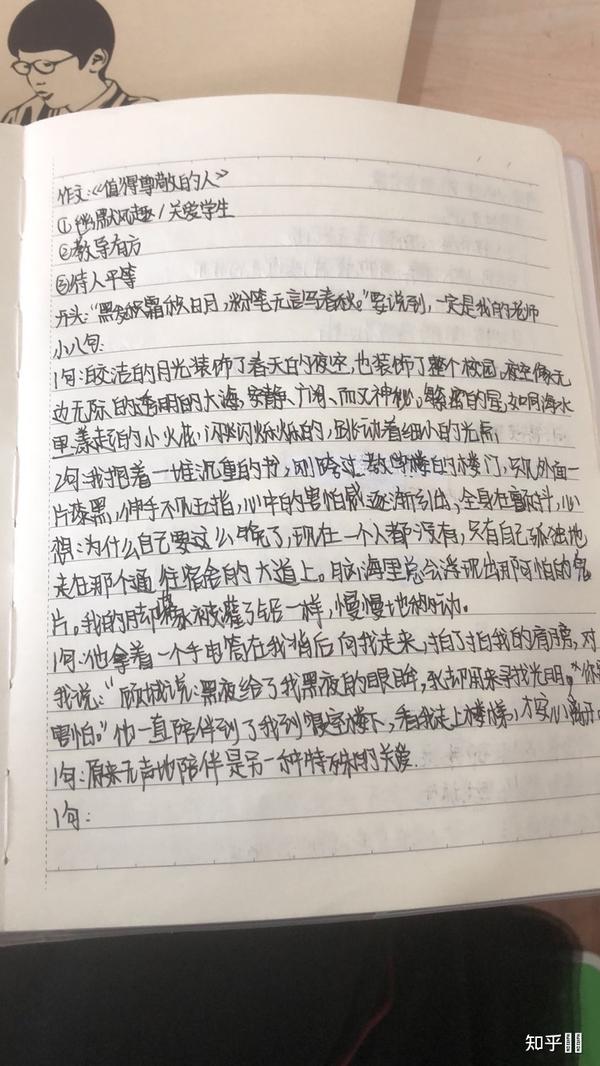 作文:《值得尊敬的人》
①幽默风趣/关爱学生
②教导有方
③待人平等
开头:"黑发积霜织日月,粉笔无言写春秋。"要说到,一定是我的老师
小八句:
1句:皎洁的月光装饰了春天的夜空,也装饰了整个校园。夜空像无
边无际的透明的大海,安静、广阔、而又神秘。繁密的星,如同海水
里漾起的小火花,闪闪烁烁的,跳动着细小的光点,
2句:我抱着一堆沉重的书,刚跨过教学楼的楼门,预外面一
片漆黑,伸手不见五指,心中的害怕感逐渐引出,全身在颤抖,心
想:为什么自己要这么晚了,现在一个人都没有,只有自己孤独地
走在那个通往宿舍的大道上。脑海里总会浮现出那可怕的鬼
片。我的脚被灌了铅一样,慢慢地挪动。
1句:他拿着一个手电筒在我背后向我走来,拍了拍我的肩膀,对
我说:"顾城说:黑夜给了我黑夜的眼眸,我却用来寻找光明。"你
害怕。"他一直陪伴到了我到寝室楼下,看我走上楼梯,才安心离开。
1句:原来无声地陪伴是另一种特殊的关爱.
1句:
知乎